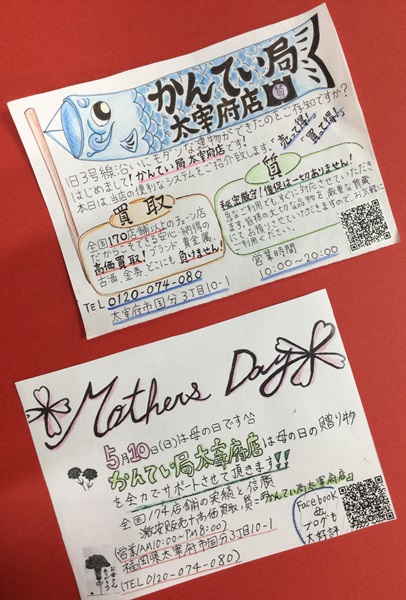 かんてい局
太宰府店
質
旧3号線沿いにモダンな建物ができたのをご存知ですか?
はじめまして!かんてい局太宰府店です!
本日は当店の便利なシステムをご紹介致します。
売って得!
買って得!
買取
全国170店舗以上のチェーン店
だからこそできる安心・納得の
高価買取!ブランド、貴金属、
古酒、金券、どこにも負けません!
質
秘密厳守!催促は一切ありません!
急なご利用でも、すぐに対応させていただき
ます。皆様の大切な品物を、厳重な質蔵
にてお預りさせていただきますので、お気軽に
ご利用ください。
営業時間
10:00~20:00
TEL 0120-074-080
太宰府市国分3丁目10-1
Mothers Day
5月10日(日)は母の日です^^
かんてい局太宰府店は母の日の贈り物
を全力でサポートさせて頂きます!!
全国174店舗の実績と信頼
激安販売+高価買取・質=「かんてい局太宰府店」
(営業/AM10:00~PM8:00)
福岡県太宰府市国分3丁目10-1
(TEL 0120-074-080)
Facebook
&
ブログも
大好評
お母さん
ありがとう